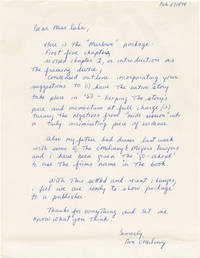 Feb 5/1974
Dear Miss Lake,
Here is the "Marlowe" package:
First five chapters,
revised chapter I, an introduction as
the framing device;
Condensed outline incorporating your
suggestions to 1) have the entire story
take place in '63 - keeping the story's
pace and momentum at full charge; 2)
Turning the negatives from "nude session" into
a truly incriminating piece of evidence
Also my father had dinner last week
with some of the Meyers lawyers
and I have been given the "go-ahead"
to use the firm's name in the book.
With this settled and recent changes,
I feel we are ready to show package
to a publisher.
Thanks for everything, and let me
know what you think!
Sincerely